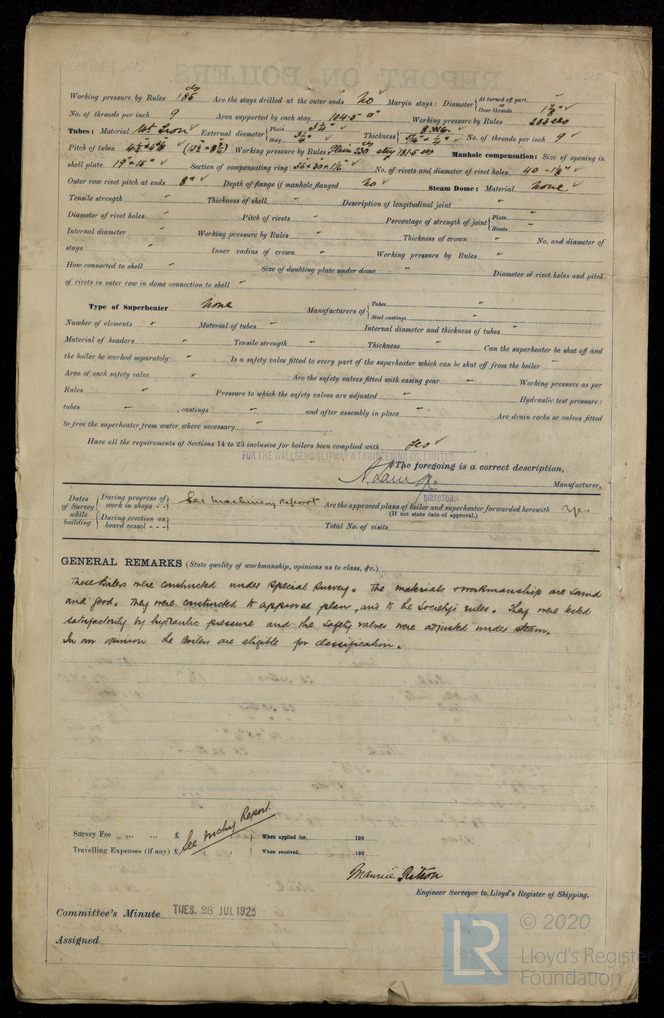 Working pressure by Rules 185 lbs Are the stays drilled at the outer ends No Margin stays: Diameter { At turned off part, or Over threads 1⅞" ✓
No. of threads per inch 9 Area supported by each stay 104.5 □" Working pressure by Rules 203 lbs
Tubes: Material Wt. Iron ✓ External diameter { Plain 3¼" ✓ Stay 3¼" ✓ Thickness { 8 WG. 5/16" & ¼" ✓ No. of threads per inch 9 ✓
Pitch of tubes Working pressure by Rules Plain 230 lbs stay 181.5 lbs Manhole compensation: Size of opening in
shell plate 19" × 15" ✓ Section of compensating ring No. of rivets and diameter of rivet holes 40 - 1⅛" ✓
Outer row rivet pitch at ends 8" ✓ Depth of flange if manhole flanged No ✓ Steam Dome: Material None ✓
Tensile strength " Thickness of shell " Description of longitudinal joint "
Diameter of rivet holes " Pitch of rivets " Percentage of strength of joint { Plate " Rivets "
Internal diameter " Working pressure by Rules " Thickness of crown " No. and diameter of
stays " Inner radius of crown " Working pressure by Rules "
How connected to shell " Size of doubling plate under dome " Diameter of rivet holes and pitch
of rivets in outer row in dome connection to shell "
Type of Superheater None Manufacturers of { Tubes " Steel castings "
Number of elements " Material of tubes " Internal diameter and thickness of tubes "
Material of headers " Tensile strength " Thickness " Can the superheater be shut off and
the boiler be worked separately " Is a safety valve fitted to every part of the superheater which can be shut off from the boiler "
Area of each safety valve " Are the safety valves fitted with easing gear " Working pressure as per
Rules " Pressure to which the safety valves are adjusted " Hydraulic test pressure:
tubes " , castings " and after assembly in place " Are drain cocks or valves fitted
to free the superheater from water where necessary "
Have all the requirements of Sections 14 to 23 inclusive for boilers been complied with Yes ✓
FOR THE WALLSEND SLIPWAY & ENGINEERING CO. LIMITED.
The foregoing is a correct description,
Manufacturer.
DIRECTOR.
Dates of Survey while building { During progress of work in shops - - } See Machinery Report Are the approved plans of boiler and superheater forwarded herewith Yes
(If not state date of approval.)
{ During erection on board vessel - - - } Total No. of visits
GENERAL REMARKS (State quality of workmanship, opinions as to class, &c.)
These Boilers were constructed under Special Survey. The materials & workmanship are sound
and good. They were constructed to approved plan, and to the Society's rules. They were tested
satisfactorily by hydraulic pressure and the safety valves were adjusted under steam.
In our opinion the Boilers are eligible for classification.
Survey Fee ... ... £ See Mchy Report. When applied for, 192
Travelling Expenses (if any) £ When received, 192
Maurice Ritson
Engineer Surveyor to Lloyd's Register of Shipping.
Committee's Minute TUES. 28 JUL 1925
Assigned
LR © 2020
Lloyd's Register
Foundation